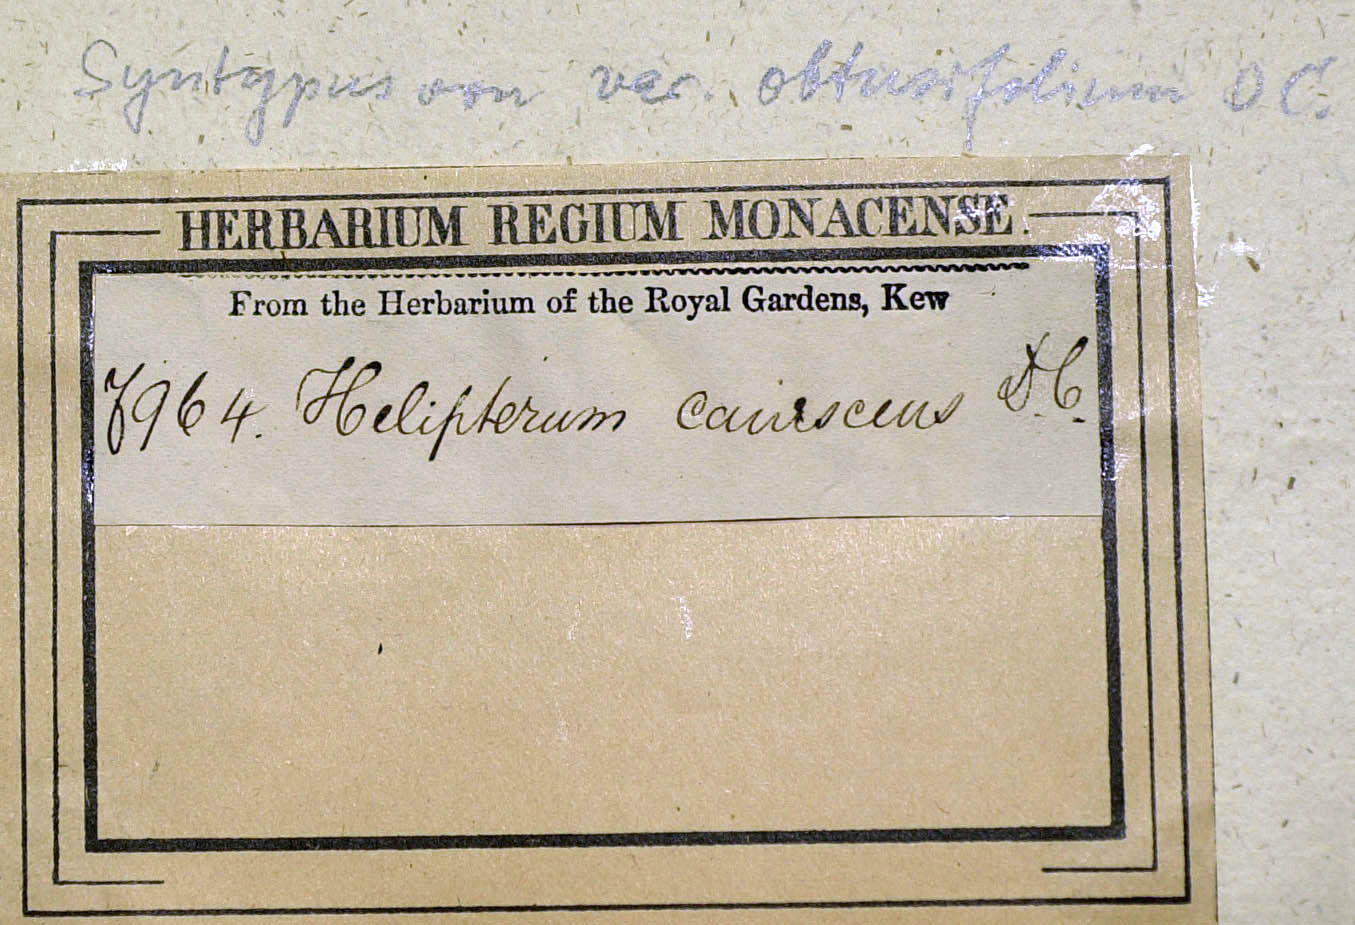 Syntypus von var. obtusifolium DC.
HERBARIUM REGIUM MONACENSE.
From the Herbarium of the Royal Gardens, Kew
7964. Helipterum canescens D.C.